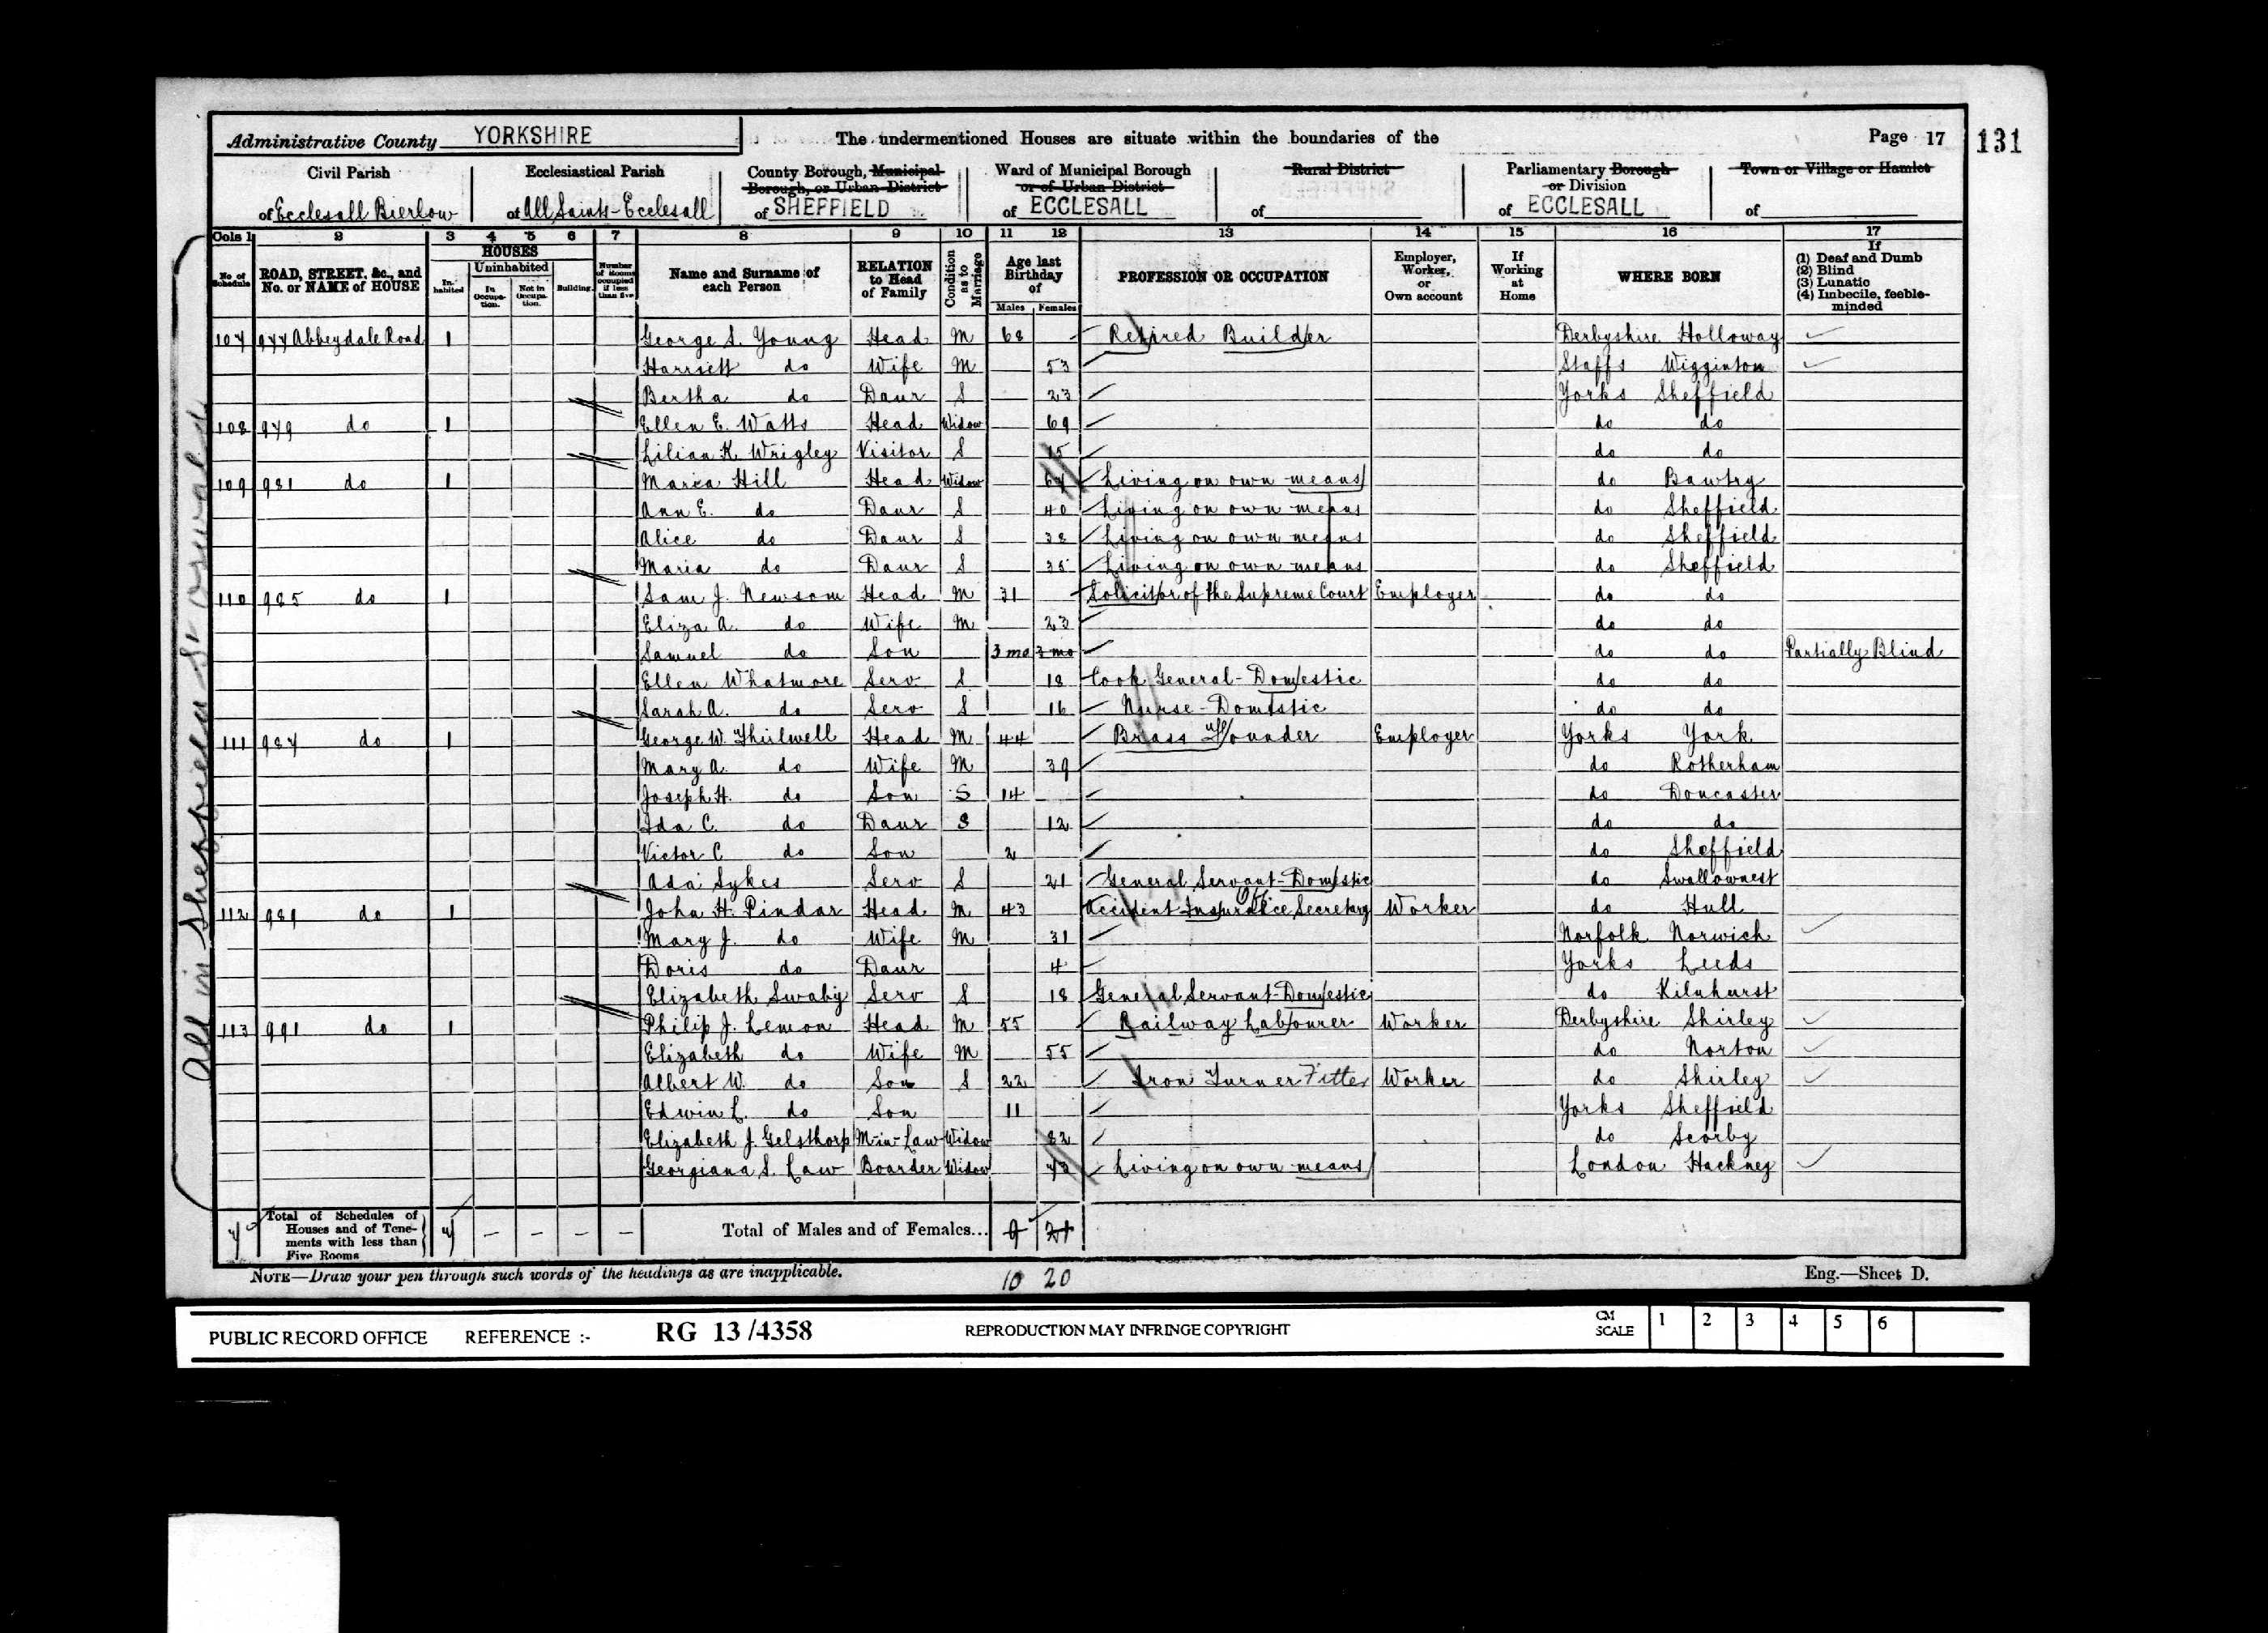 Administrative County YORKSHIRE The undermentioned Houses are situate within the boundaries of the Page 17 131
Civil Parish of Ecclesall Bierlow
Ecclesiastical Parish of All Saints - Ecclesall
County Borough, Municipal Borough, or Urban District of SHEFFIELD
Ward of Municipal Borough or of Urban District of ECCLESALL
Rural District of
Parliamentary Borough or Division of ECCLESALL
Town or Village or Hamlet of
Cols 1 2 3 4 5 6 7 8 9 10 11 12 13 14 15 16 17
No. of Schedule
ROAD, STREET, &c., and No. or NAME of HOUSE
HOUSES
Inhabited
Uninhabited
In Occupation.
Not in Occupation.
Building.
Number of Rooms occupied if less than five
Name and Surname of each Person
RELATION to Head of Family
Condition as to Marriage
Age last Birthday of
Males Females
PROFESSION OR OCCUPATION
Employer, Worker, or Own account
If Working at Home
WHERE BORN
If
(1) Deaf and Dumb
(2) Blind
(3) Lunatic
(4) Imbecile, feeble-minded
107 977 Abbeydale Road 1 George S. Young Head M 68 - Retired Builder Derbyshire Holloway
Harriett do Wife M 53 Staffs Wigginton
Bertha do Daur S 23 Yorks Sheffield
108 979 do 1 Ellen E. Watts Head Widow 69 do do
Lilian K. Wrigley Visitor S 15 do do
109 981 do 1 Maria Hill Head Widow 67 Living on own means do Bawtry
Ann E. do Daur S 40 Living on own means do Sheffield
Alice do Daur S 38 Living on own means do Sheffield
Maria do Daur S 35 Living on own means do Sheffield
110 985 do 1 Sam J. Newsom Head M 31 Solicitor of the Supreme Court Employer do do
Eliza A. do Wife M 23 do do
Samuel do Son 3 mo 3 mo do do Partially Blind
Ellen Whatmore Serv S 18 Cook General - Domestic do do
Sarah A. do Serv S 16 Nurse - Domestic do do
111 987 do 1 George W. Thirlwell Head M 44 Brass Founder Employer Yorks York
Mary A. do Wife M 39 do Rotherham
Joseph H. do Son S 14 do Doncaster
Ida C. do Daur S 12 do do
Victor C do Son 2 do Sheffield
Ada Sykes Serv S 21 General Servant - Domestic do Swallownest
112 989 do 1 John H. Pindar Head M 43 Accident Insurance Secretary Worker do Hull
Mary J. do Wife M 31 Norfolk Norwich
Doris do Daur 4 Yorks Leeds
Elizabeth Swaby Serv S 18 General Servant - Domestic do Kilnhurst
113 991 do 1 Philip J. Lemon Head M 55 Railway Labourer Worker Derbyshire Shirley
Elizabeth do Wife M 55 do Norton
Albert W. do Son S 22 Iron Turner Fitter Worker do Shirley
Edwin L. do Son 11 Yorks Sheffield
Elizabeth J. Gelsthorp M-in-Law Widow 82 do Scorby
Georgiana S. Law Boarder Widow 73 Living on own means London Hackney
All in Sheffield St Oswalds
7 Total of Schedules of Houses and of Tenements with less than Five Rooms 7 - - - - Total of Males and of Females... 9 21
10 20
NOTE—Draw your pen through such words of the headings as are inapplicable.
Eng.—Sheet D.
PUBLIC RECORD OFFICE REFERENCE :- RG 13/4358 REPRODUCTION MAY INFRINGE COPYRIGHT CM SCALE 1 2 3 4 5 6